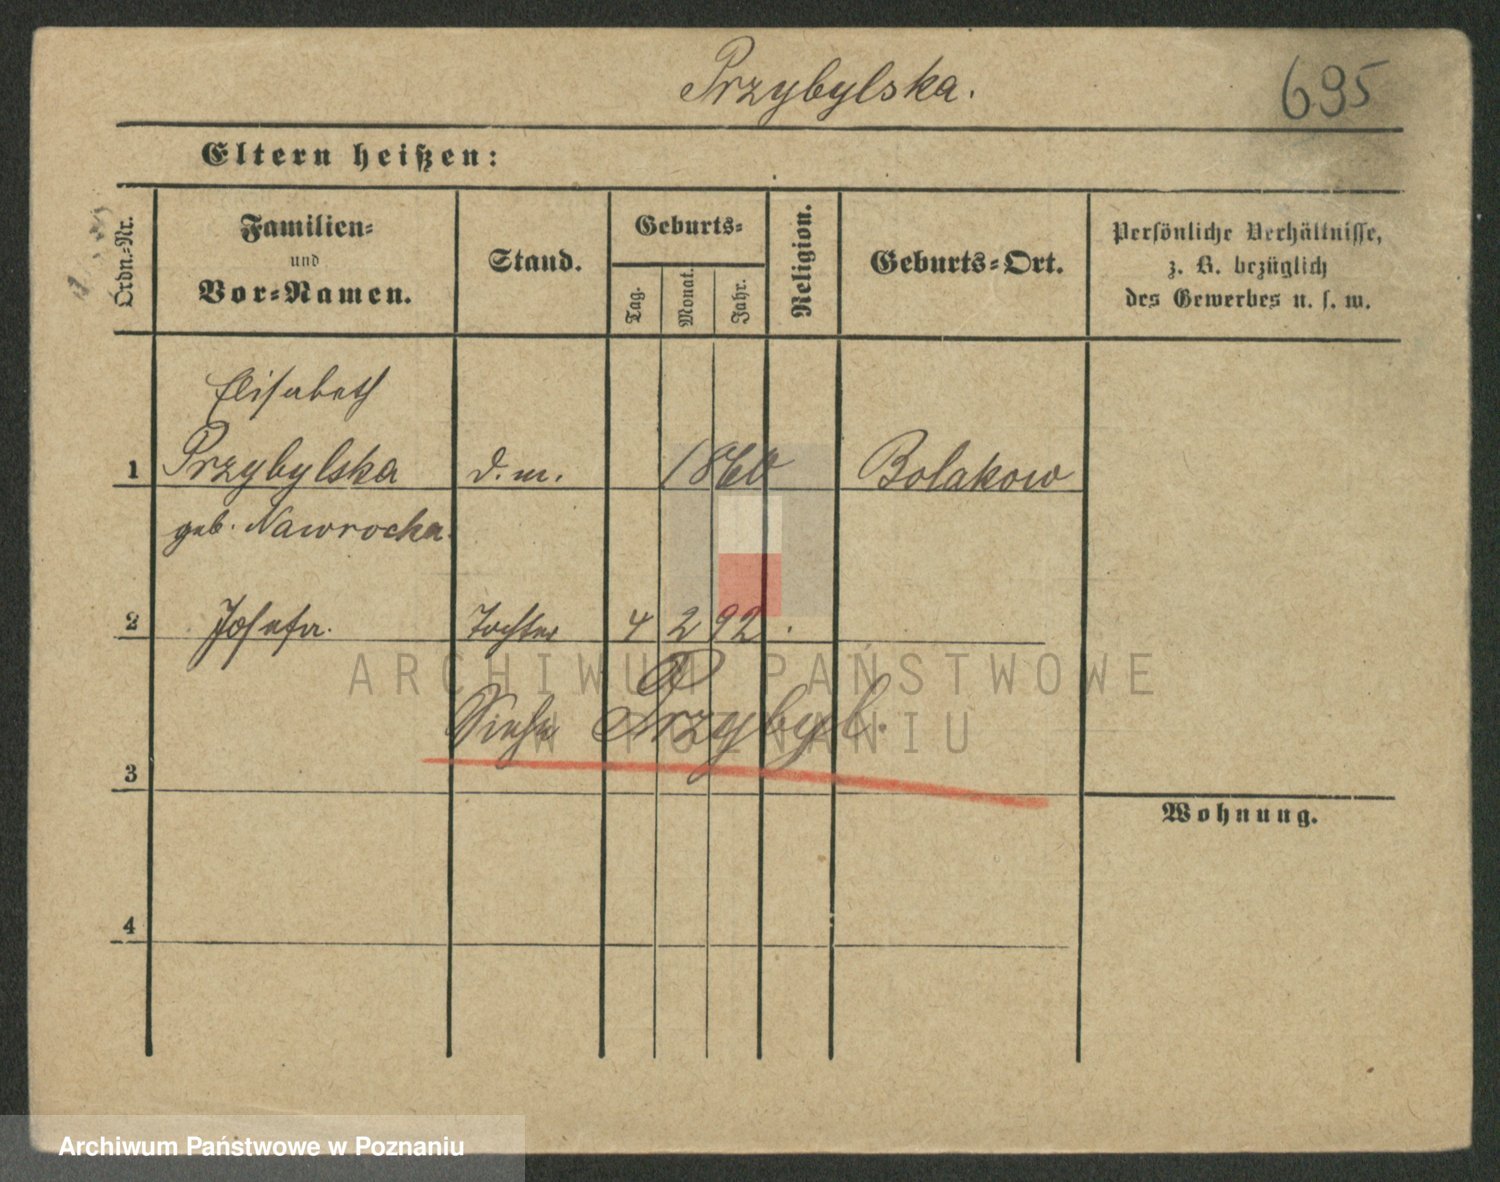 Przybylska.
695
Eltern heißen:
Ordn.-Nr.
Familien-
und
Vor-Namen.
Stand.
Geburts-
Tag.
Monat.
Jahr.
Religion.
Geburts-Ort.
Persönliche Verhältnisse,
z. B. bezüglich
des Gewerbes u. s. w.
Elisabeth
1 Przybylska d. m. 1860 Bolakow
geb. Nawrocka.
2 Josefa. Tochter 4 2 92.
ARCHIWUM PAŃSTWOWE
W POZNANIU
Siehe Przybyl.
3
Wohnung.
4
Archiwum Państwowe w Poznaniu